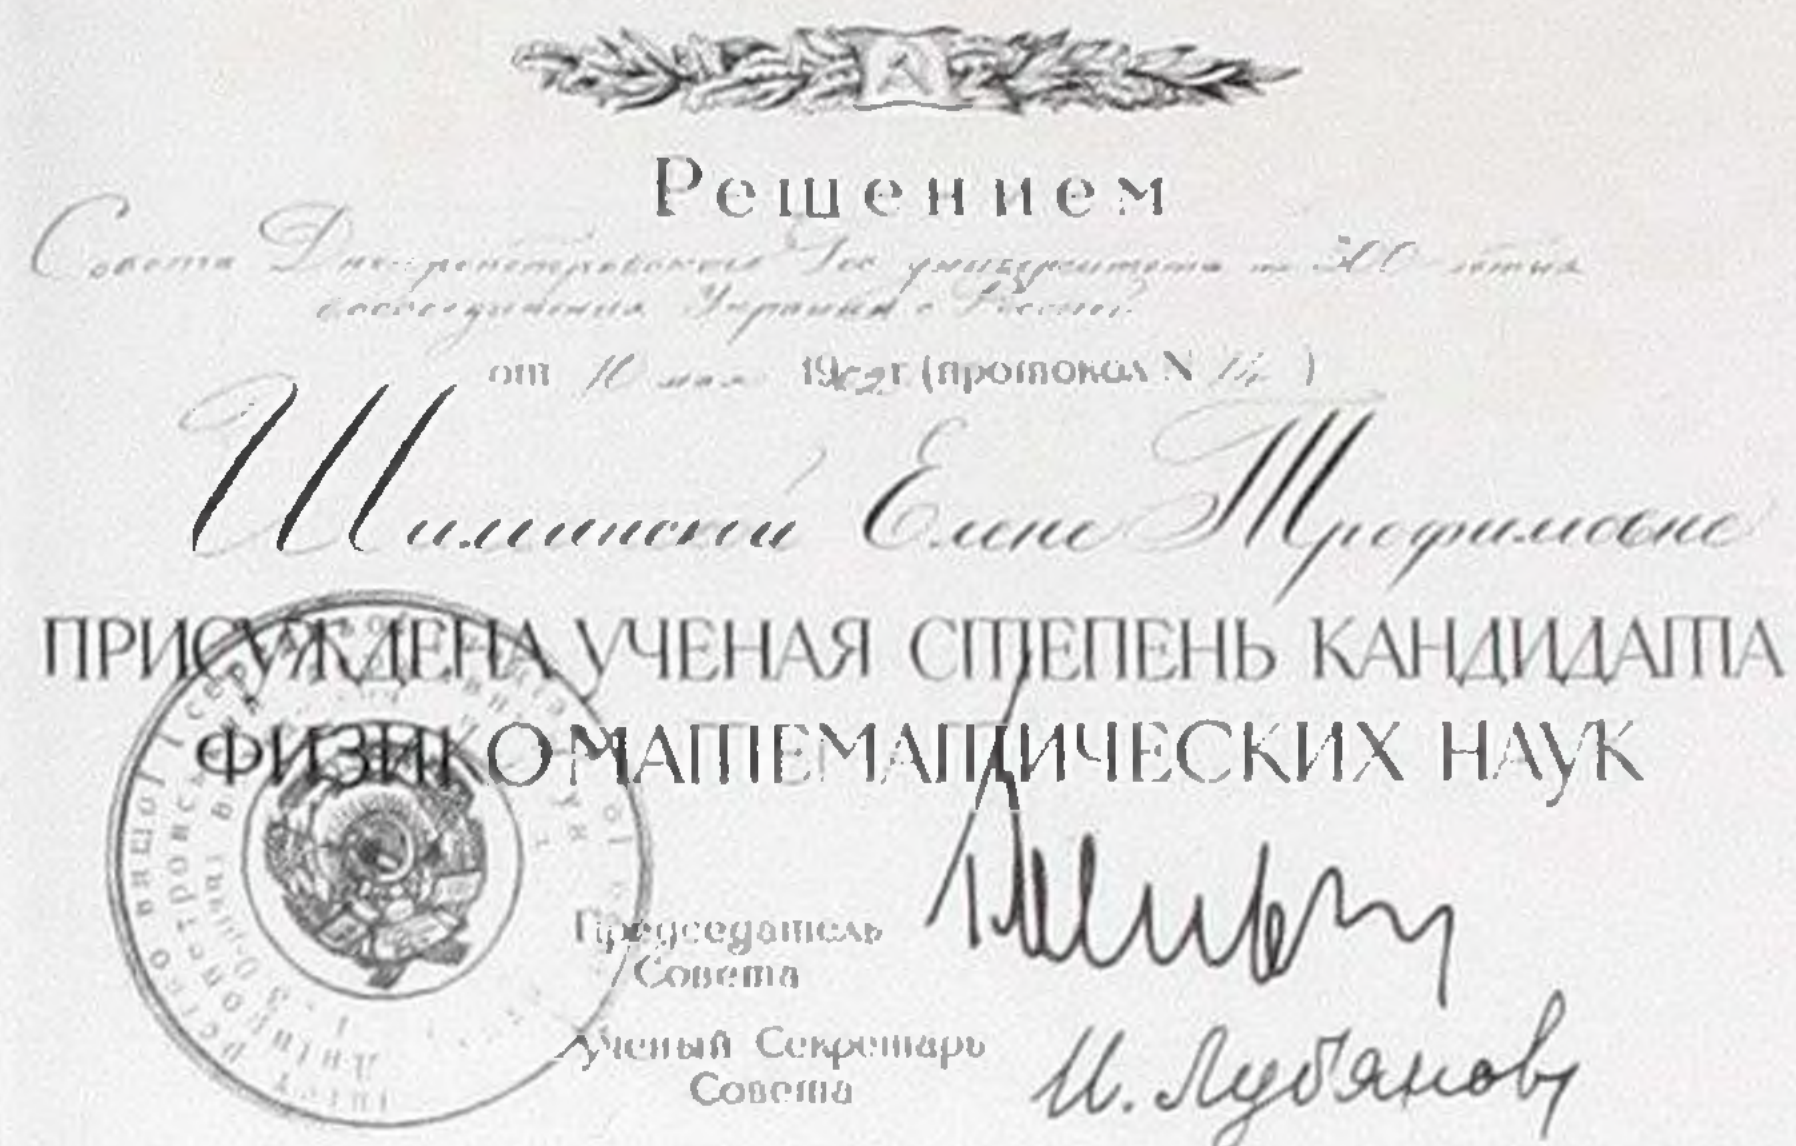 Решением
Совета Днепропетровского Гос университета им 300-летия
воссоединения Украины с Россией
от 10 мая 1962 г (протокол N )
Шиминской Елене Трофимовне
ПРИСУЖДЕНА УЧЕНАЯ СТЕПЕНЬ КАНДИДАТА
ФИЗИКО МАТЕМАТИЧЕСКИХ НАУК
Председатель
Совета
Ученый Секретарь
Совета